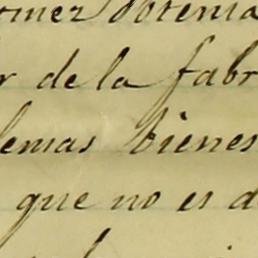 obtenia
r de la fabr
demas bienes
que no es d